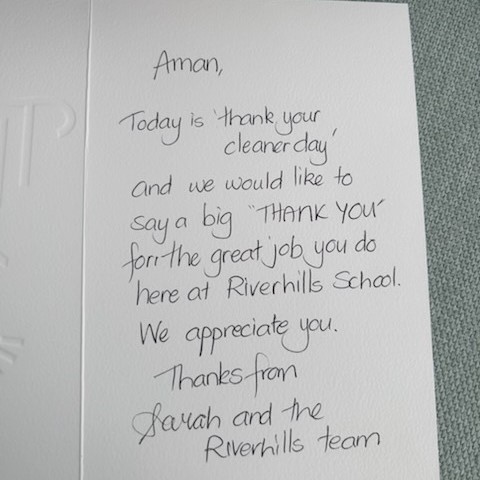 Aman,
Today is 'thank your
cleaner day'
and we would like to
say a big "THANK YOU"
for the great job you do
here at Riverhills School.
We appreciate you.
Thanks from
Sarah and the
Riverhills team